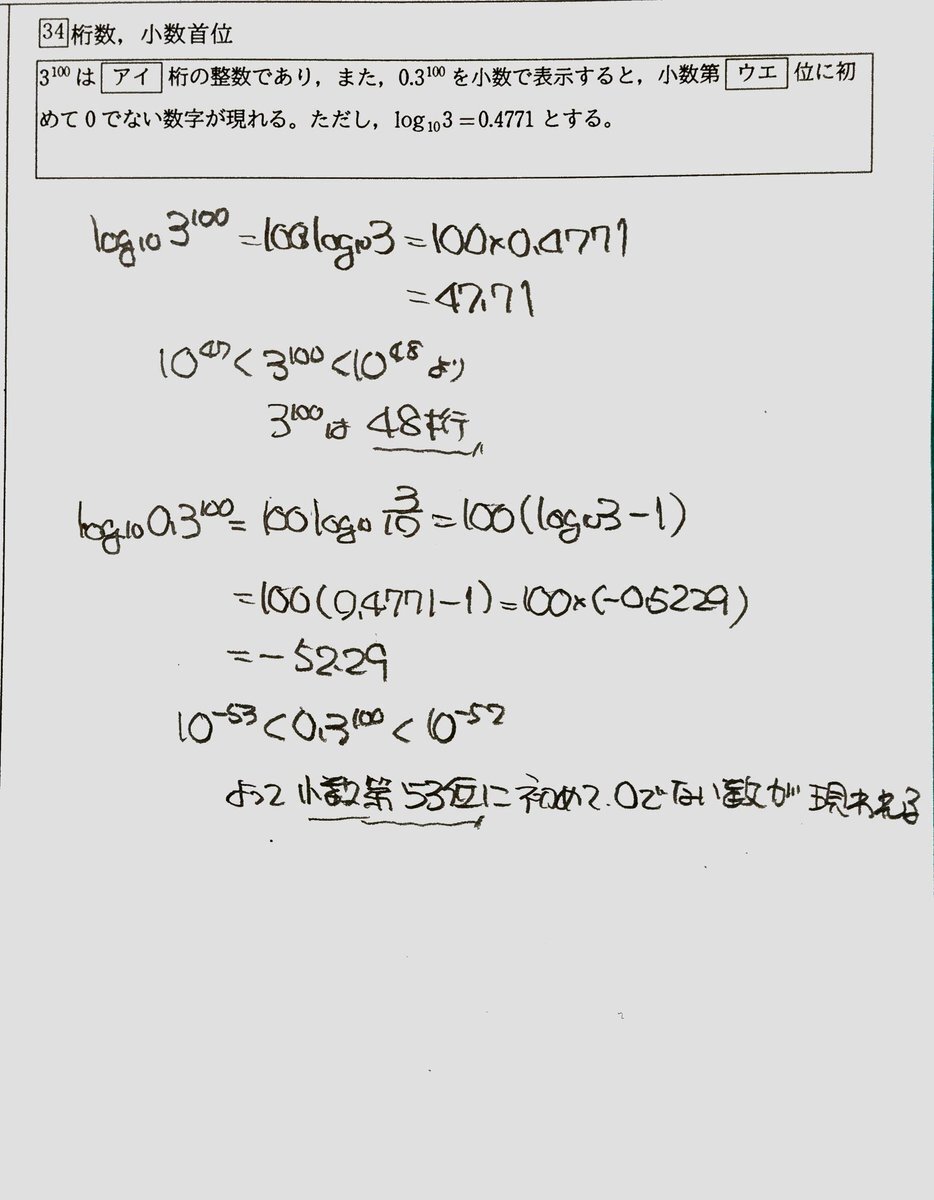 34 桁数，小数首位
3¹⁰⁰ は アイ 桁の整数であり，また，0.3¹⁰⁰ を小数で表示すると，小数第 ウエ 位に初
めて 0 でない数字が現れる。ただし，log₁₀3＝0.4771 とする。
log₁₀3¹⁰⁰ = 100log₁₀3 = 100×0.4771
= 47.71
10⁴⁷ < 3¹⁰⁰ < 10⁴⁸ より
3¹⁰⁰は 48桁
log₁₀0.3¹⁰⁰ = 100log₁₀ 3/10 = 100(log₁₀3−1)
= 100(0.4771−1) = 100×(−0.5229)
= −52.29
10⁻⁵³ < 0.3¹⁰⁰ < 10⁻⁵²
よって 小数第53位に初めて.0でない数が現われる